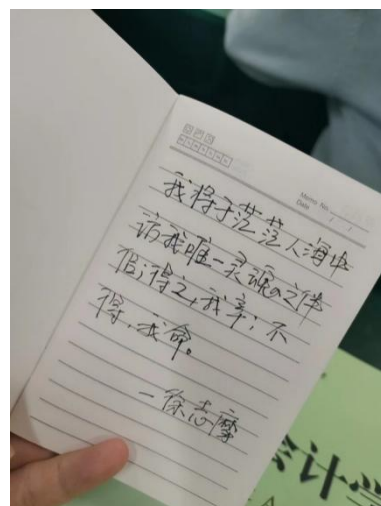 Memo No.
Date / /
我将于茫茫人海中
访我唯一灵魂之伴
侣；得之，我幸；不
得，我命。
—徐志摩
会计学